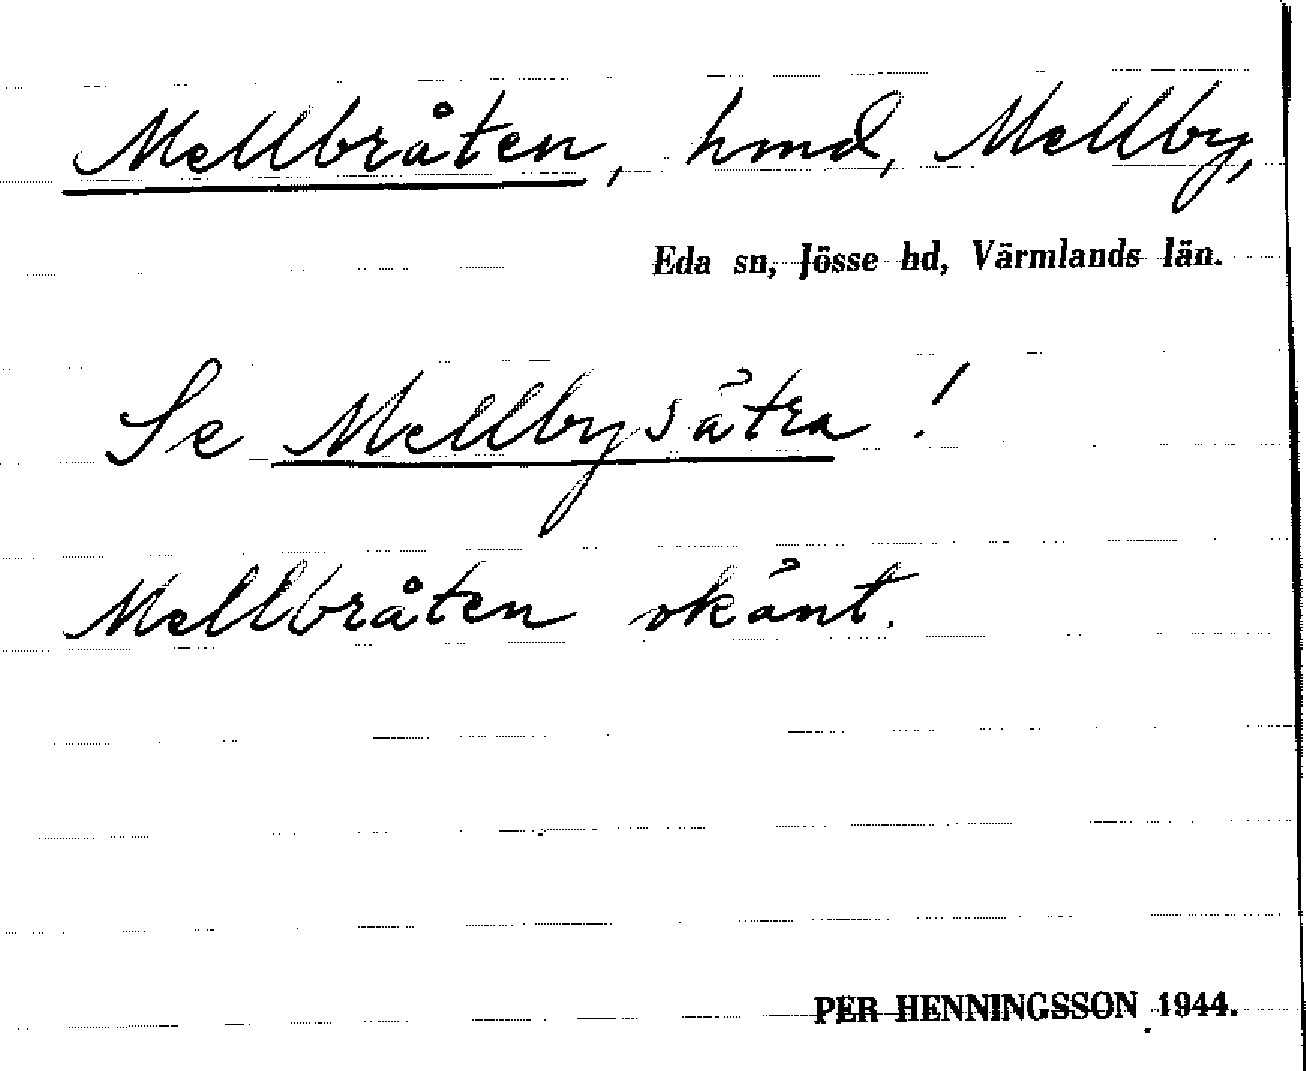 Mellbråten, hmd, Mellby,
Eda sn, Jösse hd, Värmlands län.
Se Mellbysätra!
Mellbråten okänt.
PER HENNINGSSON 1944.